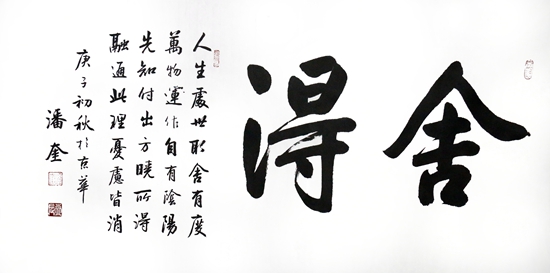 舍得
人生處世取舍有度
萬物運作自有陰陽
先知付出方曉所得
融通此理憂慮皆消
庚子初秋於京華
潘奎